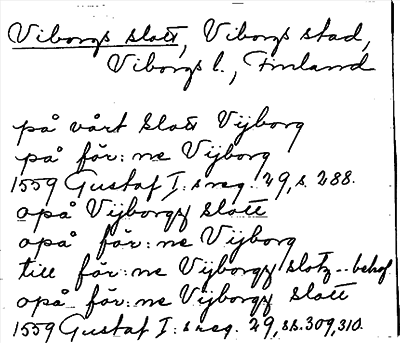 Viborgs slott, Viborgs stad,
Viborgs l., Finland
på vårt Slott Vijborg
på för:ne Vijborg
1559 Gustaf I:s reg. 29, s. 288.
opå Vijborgz slott
opå för:ne Vijborg
till för:ne Vijborgz slotz -- behof
opå för:ne Vijborgz Slott
1559 Gustaf I:s reg. 29, ss. 309, 310.